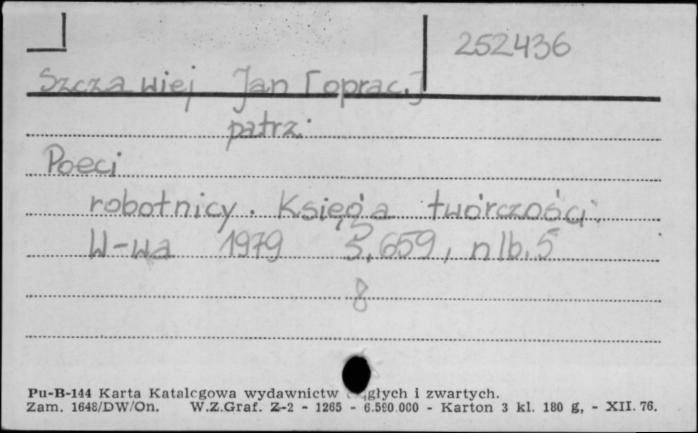 252436
Szczawiej Jan [oprac.]
patrz:
Poeci
robotnicy. Księga twórczości.
W-wa 1979 S. 659, nlb. 5
8
Pu-B-144 Karta Katalogowa wydawnictw i zwartych.
Zam. 1648/DW/On. W.Z.Graf. Z-2 - 1265 - 6.590.000 - Karton 3 kl. 180 g, - XII. 76.